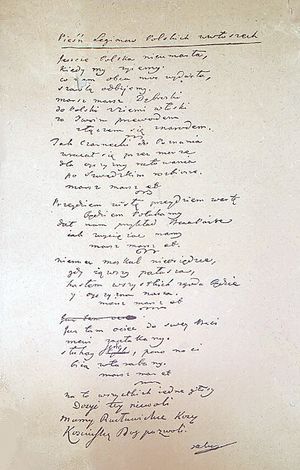 Pieśń Legionów Polskich we Włoszech
Jeszcze Polska nie umarła,
kiedy my żyjemy.
co nam obca moc wydarła,
szablą odbijemy.
marsz marsz Dąbroski
do Polski z ziemi włoski
za Twoim przewodem
złączem się z narodem.
Jak Czarnecki do Poznania
wracał się przez morze
dla ojczyzny ratowania
po szwedzkim rozbiorze.
marsz marsz etc
Przejdziem Wisłę przejdziem Wartę
będziem Polakami
dał nam przykład Bonaparte
jak zwyciężać mamy
marsz marsz etc.
niemiec moskal nieosiędzie,
gdy jąwszy pałasza,
hasłem wszystkich zgoda będzie
y ojczyzna nasza.
marsz marsz etc
Już tam ociec
Już tam ociec do swej Basi
mówi zapłakany.
słuchaj jeno, pono nasi
biją w tarabany.
marsz marsz etc
na to wszystkich jedne głosy
Dosyć tej niewoli
mamy Racławickie Kosy
Kościuszkę Bóg pozwoli.